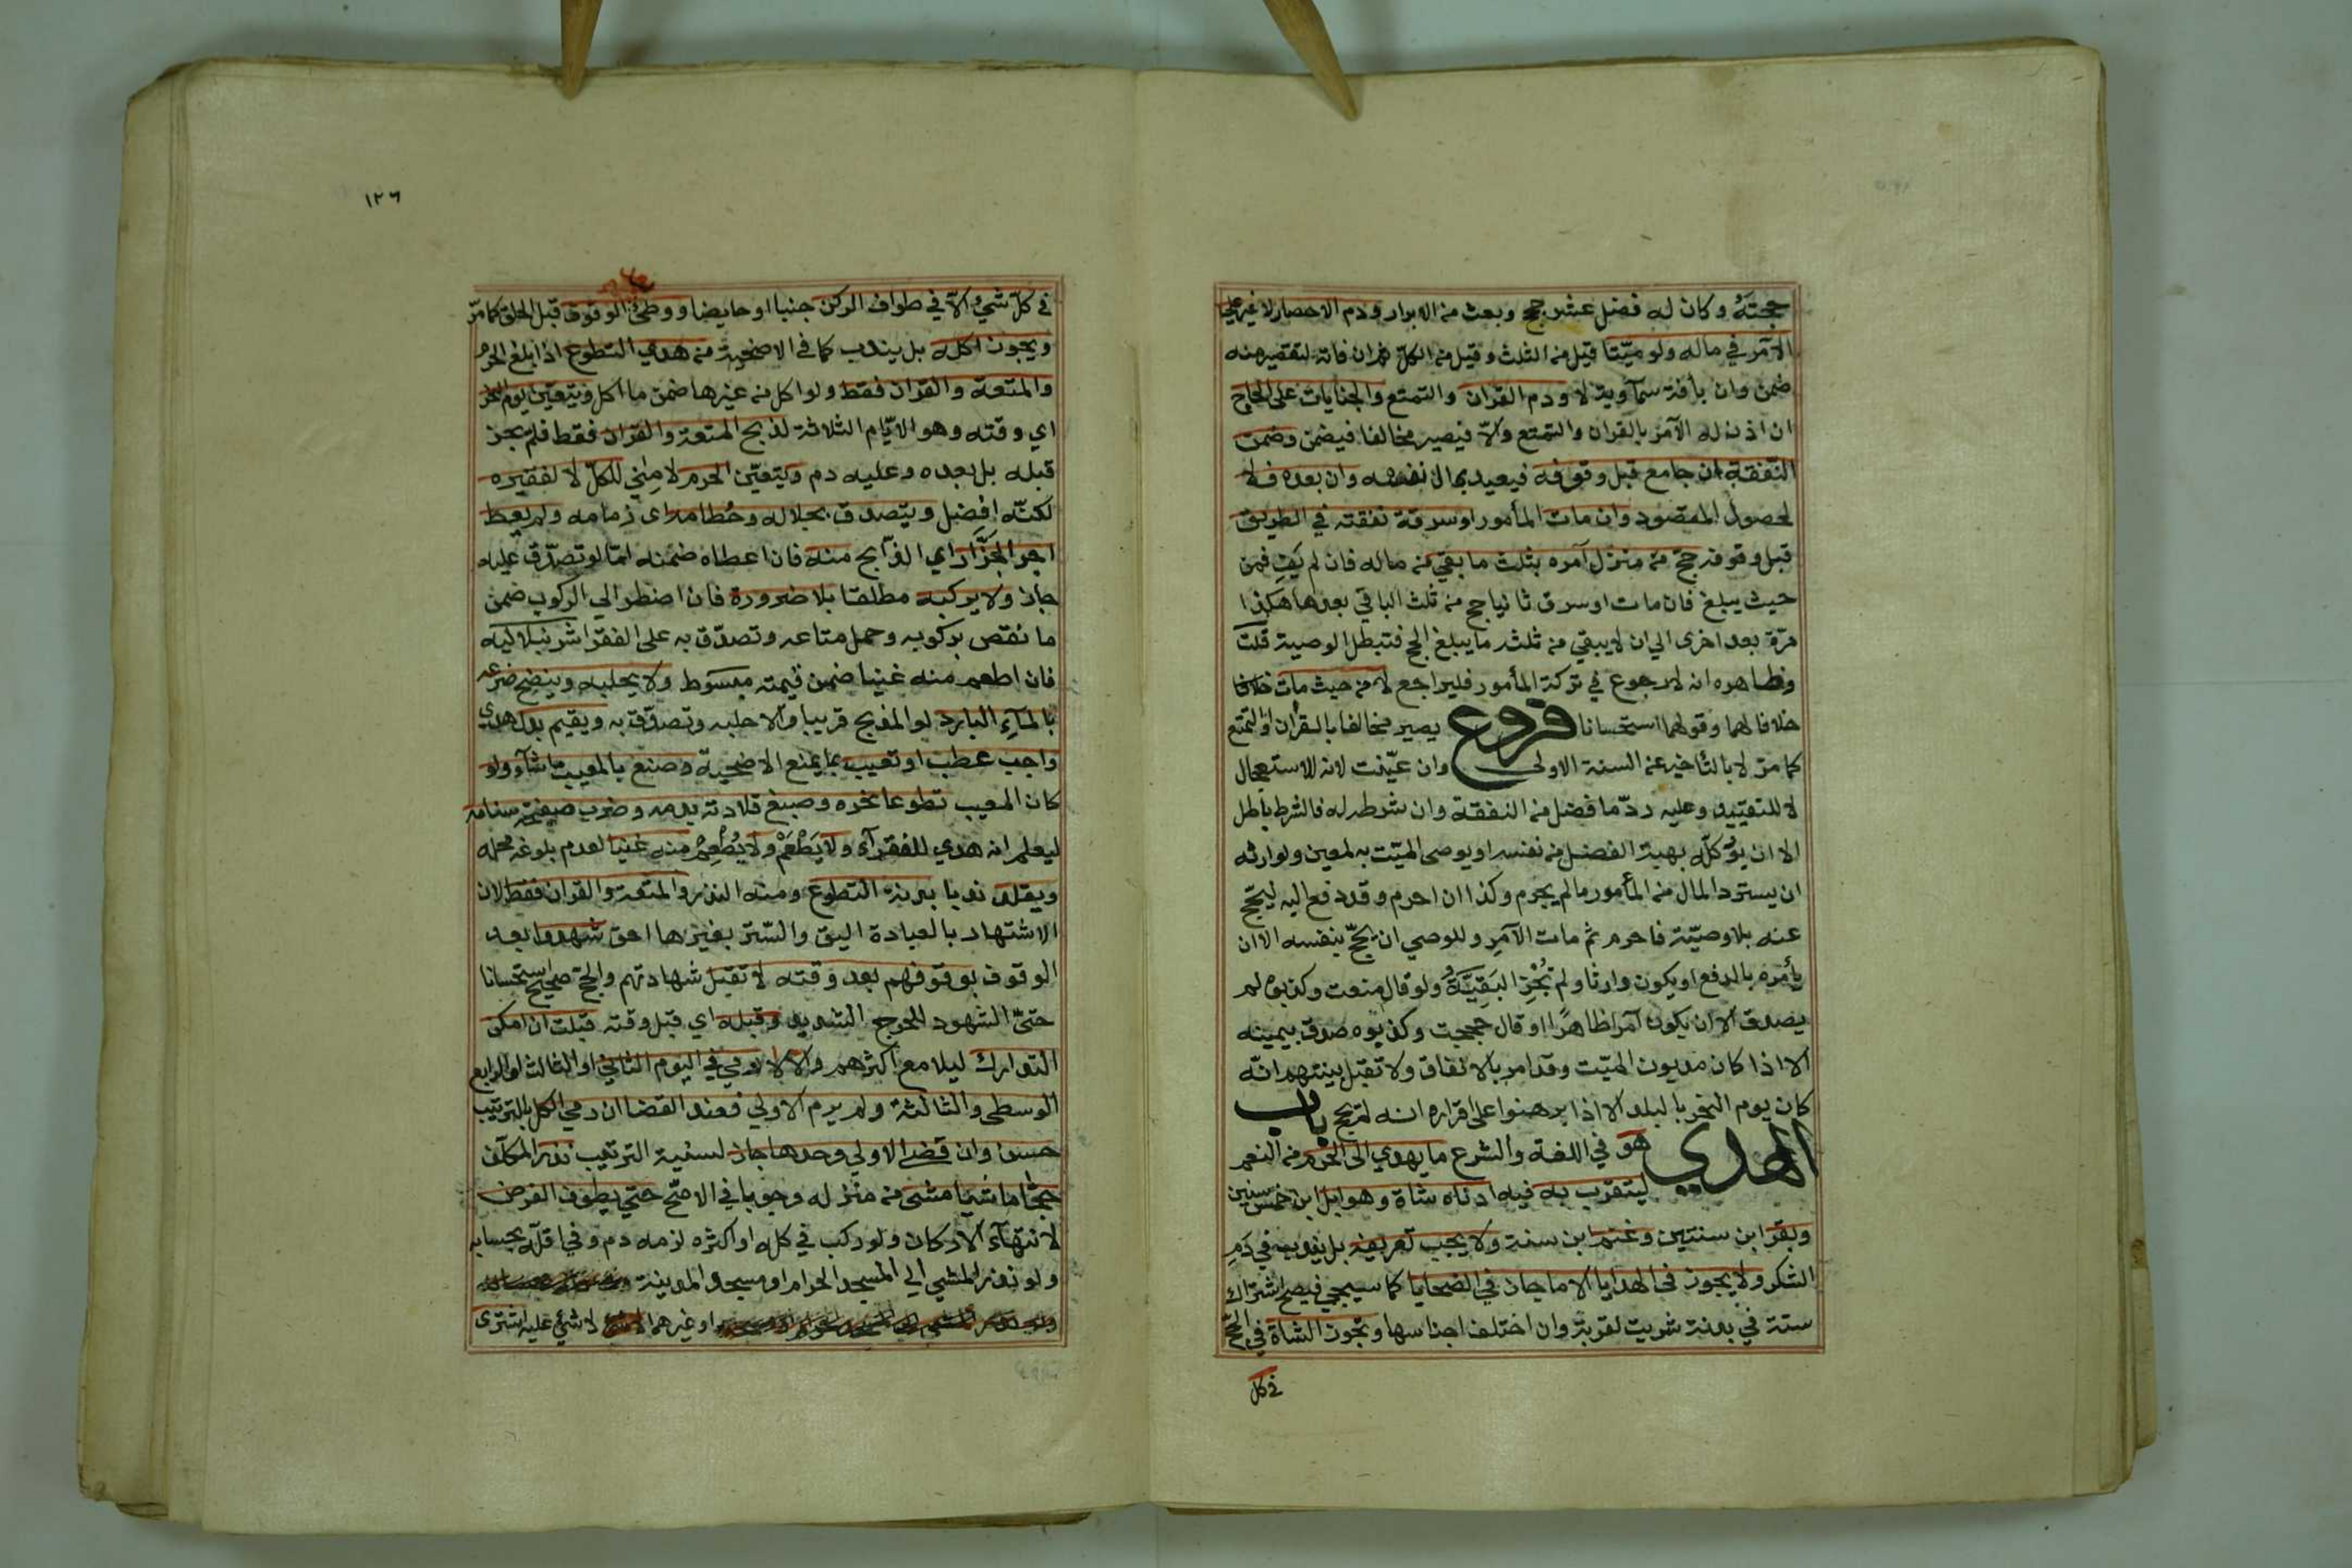 حجته وكان له فضل عشر حجج وبعث من الابرار ودم الاحصار لا غير على
الآمر في ماله ولو ميتا قيل من الثلث وقيل من الكل ثم ان فاته لتقصير منه
ضمن وان بآفة سماوية لا ودم القران والتمتع والجنايات على الحاج
ان اذن له الآمر بالقران والتمتع والا فيصير مخالفا فيضمن وضمن
النفقة ان جامع قبل وقوفه فيعيد بمال نفسه وان بعده فلا
لحصول المقصود وان مات المأمور او سرقة نفقته في الطريق
قبل وقوفه حج من منزل آمره بثلث ما بقي من ماله فان لم يف فمن
حيث يبلغ فان مات او سرق ثانيا حج من ثلث الباقي بعدها هكذا
مرة بعد اخرى الي ان لا يبقي من ثلثه ما يبلغ الحج فتبطل الوصية قلت
وظاهره انه لا رجوع في تركة المأمور فليراجع لا من حيث مات خلافا
خلافا لهما وقولهما استحسانا فروع يصير مخالفا بالقران او التمتع
كما مر لا بالتأخير عن السنة الاولى وان عينت لانه للاستعجال
لا للتقييد وعليه رد ما فضل من النفقة وان شرطه له فالشرط باطل
الا ان يوكله بهبة الفضل من نفسه او يوصى الميت به لمعين ولوارثه
ان يسترد المال من المأمور ما لم يحرم وكذا ان احرم وقد دفع اليه ليحج
عنه بلا وصية فاحرم ثم مات الآمر وللوصي ان يحج بنفسه الا ان
يأمره بالدفع او يكون وارثا ولم تجز البقية ولو قال منعت وكذبوه لم
يصدق الا ان يكون آمرا ظاهرا او قال حججت وكذبوه صدق بيمينه
الا اذا كان مديون الميت وقد امر بالانفاق ولا تقبل بينتهم انه
كان يوم النحر بالبلد الا اذا برهنوا على اقراره انه لم يحج باب
الهدي هو في اللغة والشرع ما يهدي الى الحرم من النعم
ليتقرب به فيه ادناه شاة وهو ابل ابن خمس سنين
وبقر ابن سنتين وغنم ابن سنة ولا يجب تعريفه بل يندب في دم
الشكر ولا يجوز في الهدايا الا ما جاز في الضحايا كما سيجي فيصح اشتراك
ستة في بدنة شريت لقربة وان اختلف اجناسها وتجوز الشاة في الحج
في كل
١٢٦
في كل شيء الا في طواف الركن جنبا او حايضا ووطئ الوقوف قبل الحلق كما مر
ويجوز اكله بل يندب كما في الاضحية من هدي التطوع اذا بلغ الحرم
والمتعة والقران فقط ولو اكل من غيرها ضمن ما اكل ويتعين يوم النحر
اي وقته وهو الايام الثلاثة لذبح المتعة والقران فقط فلم يجز
قبله بل بعده وعليه دم ويتعين الحرم لا منى للكل لا لفقيره
لكنه افضل ويتصدق بجلاله وخطامه اى زمامه ولم يعط
اجر الجزار اي الذابح منه فان اعطاه ضمنه اما لو تصدق عليه
جاز ولا يركبه مطلقا بلا ضرورة فان اضطر الي الركوب ضمن
ما نقص بركوبه وحمل متاعه وتصدق به على الفقرا شرنبلالية
فان اطعم منه غنيا ضمن قيمته مبسوط ولا يحلبه وينضح ضرعه
بالمآء البارد لو المذبح قريبا والا حلبه وتصدق به ويقيم بدل هدي
واجب عطب او تعيب بما يمنع الاضحية وصنع بالمعيب ما شآء ولو
كان المعيب تطوعا نحره وصبغ قلادته بدمه وضرب صفحة سنامه
ليعلم انه هدي للفقرآء ولا يطعم ولا يطعم منه غنيا لعدم بلوغه محله
ويقلد ندبا بدنة التطوع ومنه النذر والمتعة والقران فقط لان
الاشتهار بالعبادة اليق والستر بغيرها احق شهدوا بعد
الوقوف بوقوفهم بعد وقته لا تقبل شهادتهم والحج صحيح استحسانا
حتى الشهود للحرج الشديد وقبله اي قبل وقته قبلت ان امكن
التدارك ليلا مع اكثرهم والا لا رمي في اليوم الثاني او الثالث او الرابع
الوسطى والثالثة ولم يرم الاولي فعند القضا ان رمي الكل بالترتيب
حسن وان قضى الاولي وحدها جاز لسنية الترتيب نذر المكلف
حجا ماشيا مشى من منزله وجوبا في الاصح حتي يطوف الفرض
لانتهآء الاركان ولو ركب في كله او اكثره لزمه دم وفي اقله بحسابه
ولو نذر المشي الي المسجد الحرام او مسجد المدينة
او غيرهما لا شئ عليه اشترى